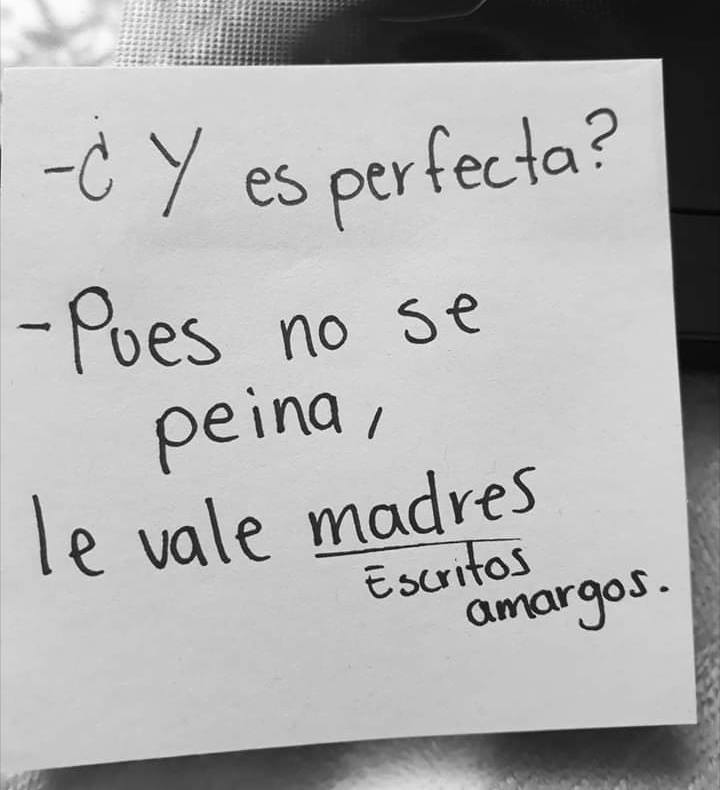 -¿Y es perfecta?
-Pues no se
peina,
le vale madres
Escritos
amargos.